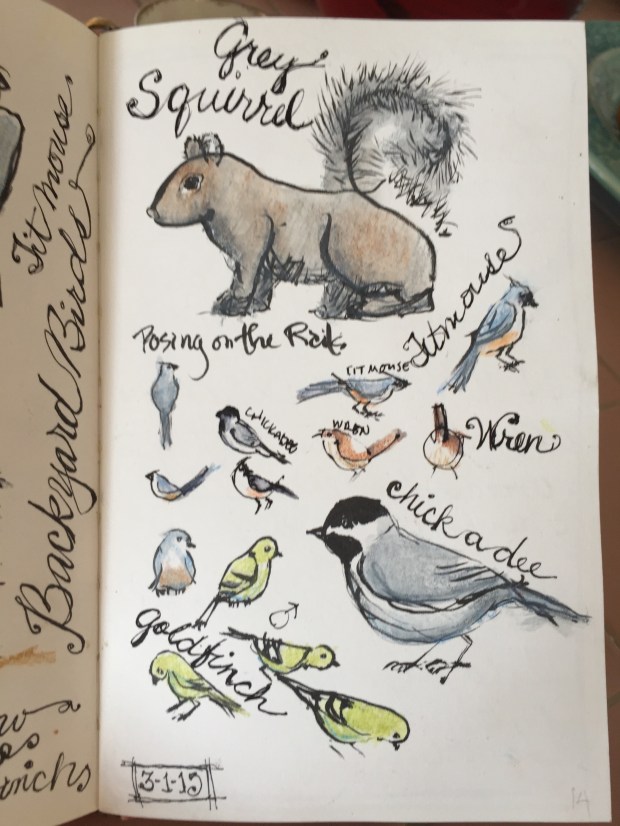 Titmouse
Backyard Birds
Grey
Squirrel
Posing on the
Titmouse
TITMOUSE
CHICKADEE
WREN
Wren
chickadee
♂
goldfinch
3-1-15
14